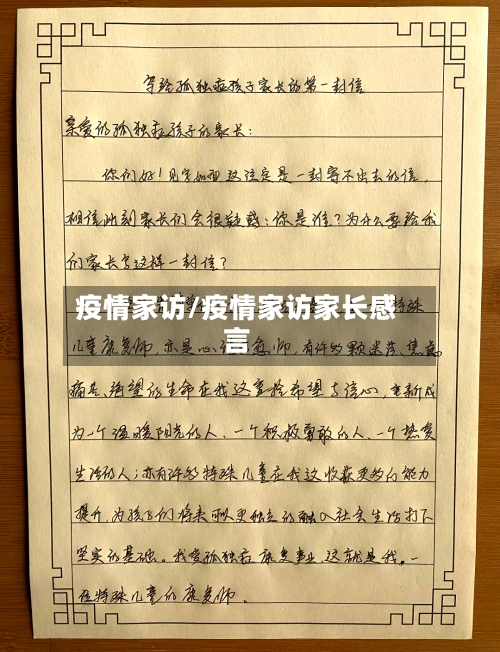 写给孤独症孩子家长的第一封信
亲爱的孤独症孩子的家长：
你们好！见字如面 这注定是一封寄不出去的信，
相信此刻家长们会很疑惑：你是谁？为什么要给我
们家长写这样一封信？
疫情家访/疫情家访家长感
言
特殊
儿童康复师，亦是心理 师，有许多颗迷茫、焦虑、
痛苦、绝望的生命在我这里拾希望与信心，重新成
为一个温暖阳光的人、一个积极勇敢的人、一个热爱
生活的人；亦有许多特殊儿童在我这收获更多的能力
提升，为孩子们将来 更独立的融入社会生活打下
坚实的基础。我爱孤独症康复事业，这就是我，一
位特殊儿童的康复师。